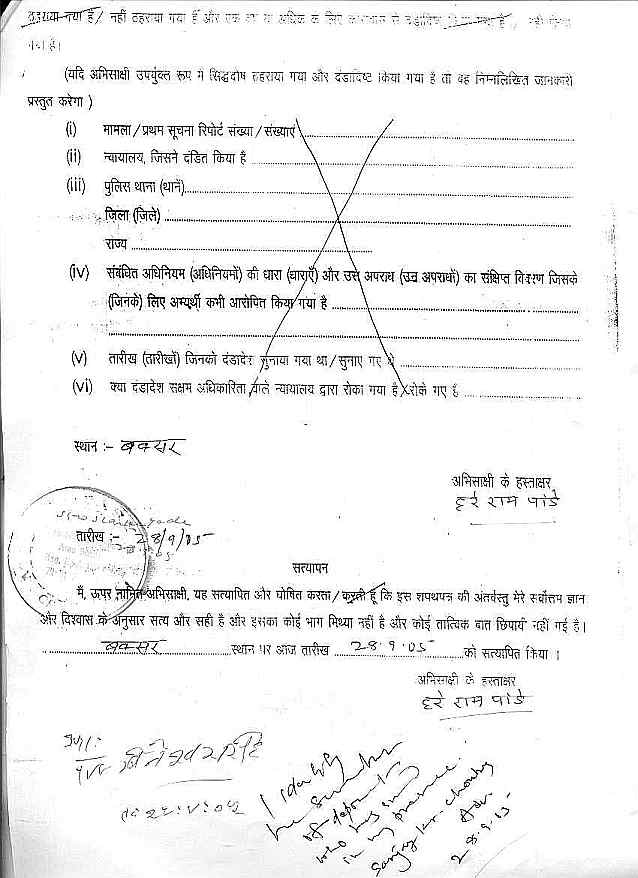 ठहराया गया है / नहीं ठहराया गया है और एक वर्ष या अधिक के लिए कारावास से दंडादिष्ट किया गया है
गया है।
(यदि अभिसाक्षी उपर्युक्त रूप में सिद्धदोष ठहराया गया और दंडादिष्ट किया गया है तो वह निम्नलिखित जानकारी
प्रस्तुत करेगा )
(i) मामला / प्रथम सूचना रिपोर्ट संख्या / संख्याएं
(ii) न्यायालय, जिसने दंडित किया है
(iii) पुलिस थाना (थाने)
जिला (जिले)
राज्य
(iv) संबंधित अधिनियम (अधिनियमों) की धारा (धाराएँ) और उस अपराध (उन अपराधों) का संक्षिप्त विवरण जिसके
(जिनके) लिए अभ्यर्थी कभी आरोपित किया गया है
(v) तारीख (तारीखों) जिनको दंडादेश सुनाया गया था / सुनाए गए थे
(vi) क्या दंडादेश सक्षम अधिकारिता वाले न्यायालय द्वारा रोका गया है / रोके गए है
स्थान :- बक्सर
अभिसाक्षी के हस्ताक्षर
हरे राम पांडे
तारीख :- 28/9/05
सत्यापन
मैं, ऊपर नामित अभिसाक्षी, यह सत्यापित और घोषित करता / करती हूँ कि इस शपथपत्र की अंतर्वस्तु मेरे सर्वोत्तम ज्ञान
और विश्वास के अनुसार सत्य और सही है और इसका कोई भाग मिथ्या नहीं है और कोई तात्विक बात छिपायी नहीं गई है।
बक्सर स्थान पर आज तारीख 28.9.05 को सत्यापित किया ।
अभिसाक्षी के हस्ताक्षर
हरे राम पांडे
I identify
the
of deponent
who has
in my presence.
Sanjay Kr.
Adv.
28.9.05